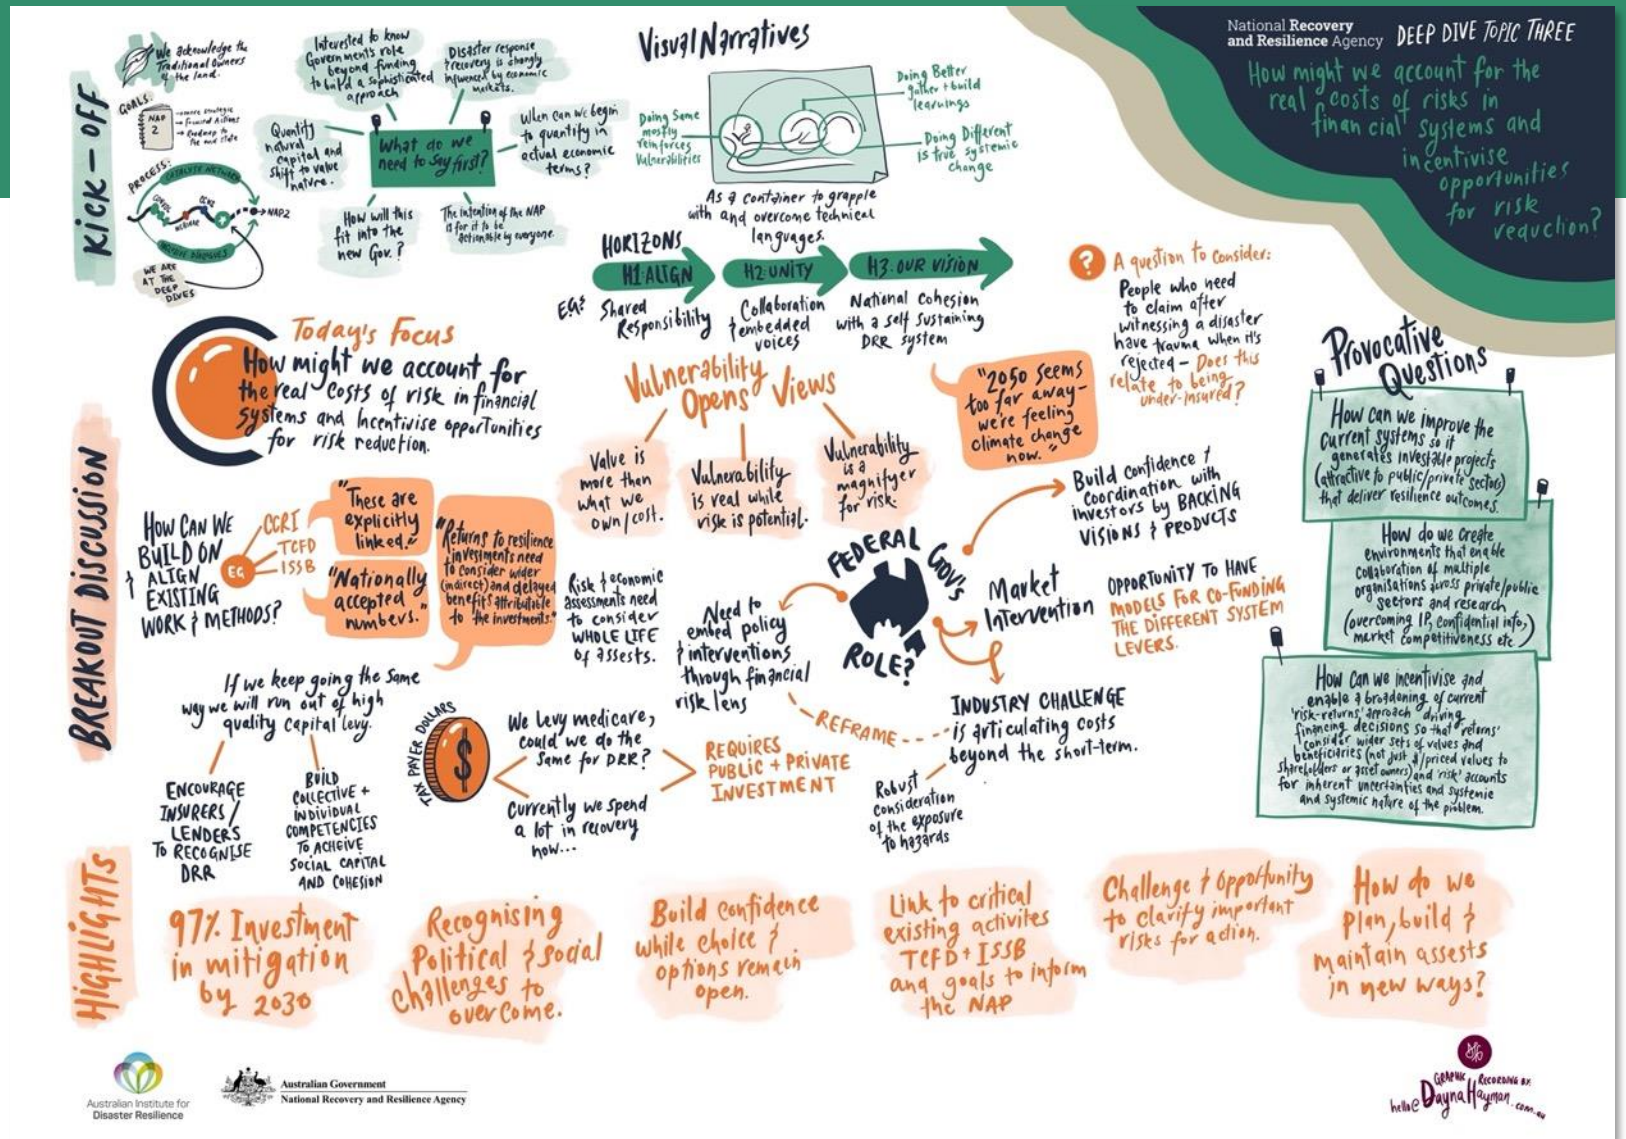 National Recovery
and Resilience Agency
DEEP DIVE TOPIC THREE
How might we account for the
real costs of risks in
financial systems and
incentivise
opportunities
for risk
reduction?
KICK-OFF
We acknowledge the
Traditional Owners
of the land.
GOALS:
NAP
2
→ Focused Actions
→ Roadmap to
PROCESS:
→NAP2
WE ARE
AT THE
DEEP
DIVES
Interested to know
Government's role
beyond funding
to build a sophisticated
approach
Disaster response
& recovery is strongly
influenced by economic
markets.
Quantity
natural
capital and
shift to value
nature.
What do we
need to say first?
When can we begin
to quantify in
actual economic
terms?
How will this
fit into the
new Gov.?
The intention of the NAP
is for it to be
actionable by everyone.
Visual Narratives
Doing Same
mostly
reinforces
Vulnerabilities
Doing Better
gather + build
learnings
Doing Different
is true systemic
change
As a container to grapple
with and overcome technical
languages.
HORIZONS
H1: ALIGN
H2: UNITY
H3: OUR VISION
EG:
Shared
Responsibility
Collaboration
& embedded
voices
National Cohesion
with a self sustaining
DRR system
?
A question to consider:
People who need
to claim after
witnessing a disaster
have trauma when it's
rejected – Does this
relate to being
under-insured?
Today's Focus
How might we account for
the real costs of risk in financial
systems and Incentivise opportunities
for risk reduction.
BREAKOUT DISCUSSION
Vulnerability
Opens Views
Value is
more than
what we
own/cost.
Vulnerability
is real while
risk is potential.
Vulnerability
is a
magnifyer
for risk.
"2050 seems
too far away-
we're feeling
climate change
now."
HOW CAN WE
BUILD ON
& ALIGN
EXISTING
WORK & METHODS?
EG
CCRI
TCFD
ISSB
"These are
explicitly
linked."
"Nationally
accepted
numbers."
"Returns to resilience
investments need
to consider wider
(indirect) and delayed
benefits attributable
to the investments."
Risk & economic
assessments need
to consider
WHOLE LIFE
OF ASSESTS.
FEDERAL GOV'S
ROLE?
Build confidence &
coordination with
investors by BACKING
VISIONS & PRODUCTS
Market
Intervention
OPPORTUNITY TO HAVE
MODELS FOR CO-FUNDING
THE DIFFERENT SYSTEM
LEVERS.
Need to
embed policy
& interventions
through financial
risk lens
REFRAME
INDUSTRY CHALLENGE
is articulating costs
beyond the short-term.
Robust
consideration
of the exposure
to hazards
If we keep going the same
way we will run out of high
quality Capital levy.
ENCOURAGE
INSURERS/
LENDERS
TO RECOGNISE
DRR
BUILD
COLLECTIVE +
INDIVIDUAL
COMPETENCIES
TO ACHEIVE
SOCIAL CAPITAL
AND COHESION
TAX PAYER DOLLARS
$
We levy medicare,
could we do the
same for DRR?
Currently we spend
a lot in recovery
now...
REQUIRES
PUBLIC + PRIVATE
INVESTMENT
Provocative
Questions
How can we improve the
current systems so it
generates investable projects
(attractive to public/private sectors)
that deliver resilience outcomes.
How do we create
environments that enable
collaboration of multiple
organisations across private/public
sectors and research
(overcoming IP, confidential info,
market competitiveness etc.)
How can we incentivise and
enable a broadening of current
'risk-returns' approach driving
financing decisions so that 'returns'
consider wider sets of values and
beneficiaries (not just $/priced values to
shareholders or asset owners) and 'risk' accounts
for inherent uncertainties and systemic
and systemic nature of the problem.
HIGHLIGHTS
97% Investment
in mitigation
by 2030
Recognising
Political & Social
challenges to
overcome.
Build confidence
while choice &
options remain
open.
Link to critical
existing activites
TCFD + ISSB
and goals to inform
the NAP
Challenge & Opportunity
to clarify important
risks for action.
How do we
Plan, build &
maintain assests
in new ways?
Australian Institute for
Disaster Resilience
Australian Government
National Recovery and Resilience Agency
GRAPHIC RECORDING BY:
hello@DaynaHayman.com.au